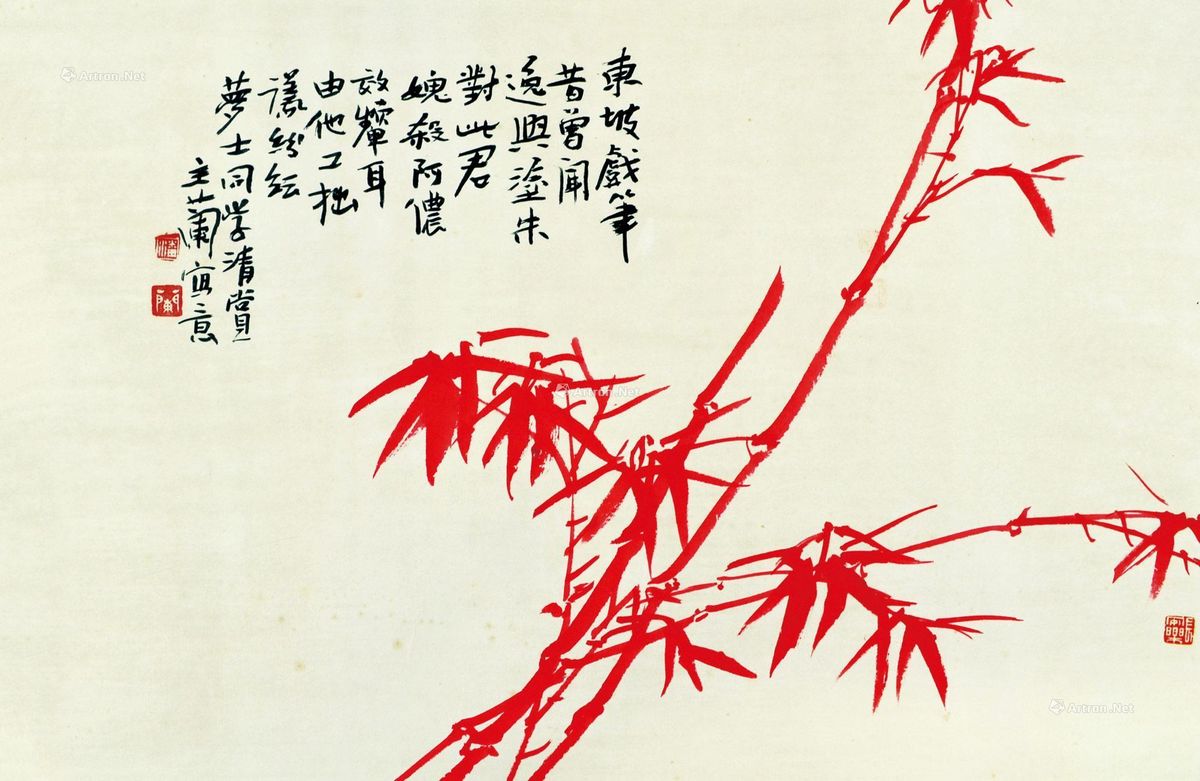 東坡戲筆
昔曾聞
逸興塗朱
對此君
媿殺阿儂
效顰耳
由他工拙
議紛紜
夢士同學清賞
主蘭寫意
Artron.Net
Artron.Net
Artron.Net